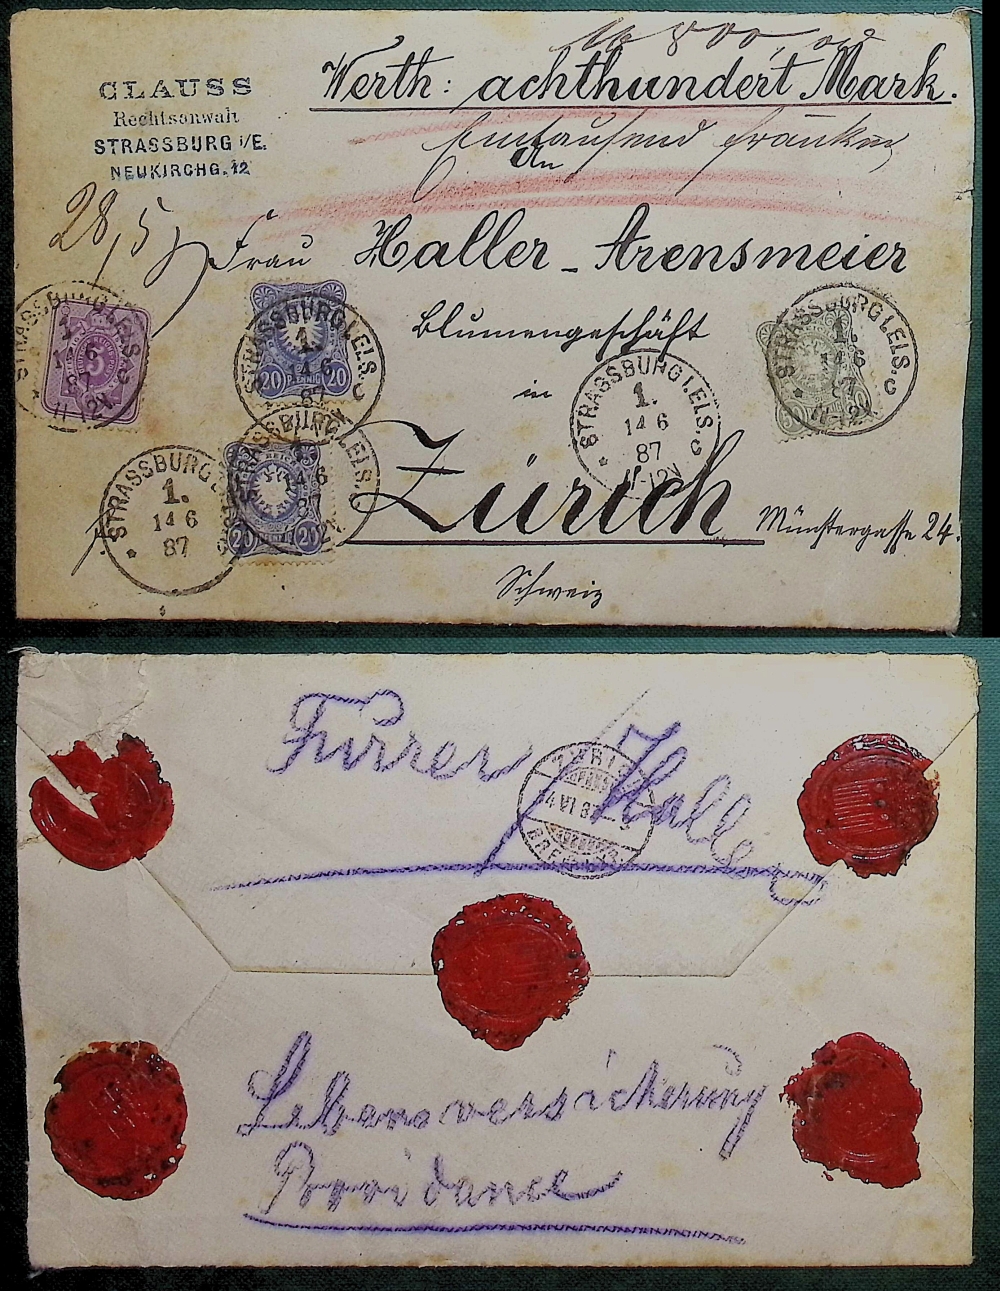 800
Werth: achthundert Mark.
CLAUSS
Rechtsanwalt
STRASSBURG i/E.
NEUKIRCHG. 12
Eintausend Franken
An
28,5
Frau Haller-Arensmeier
Blumengeschäft
in
Zürich Münstergasse 24.
Schweiz
STRASSBURG I. ELS.
1.
14 6
87
11-12V
5
STRASSBURG I. ELS. c
1.
14 6
87
20 PFENNIG 20
STRASSBURG I. ELS. c
1.
14 6
87
11-12V
STRASSBURG I. ELS. c
1.
14 6
87
11-12V
STRASSBURG
1.
14 6
87
STRASSBURG I. ELS.
14 6
87
20 20
Furrer / Haller
Lebensversicherung
Providance